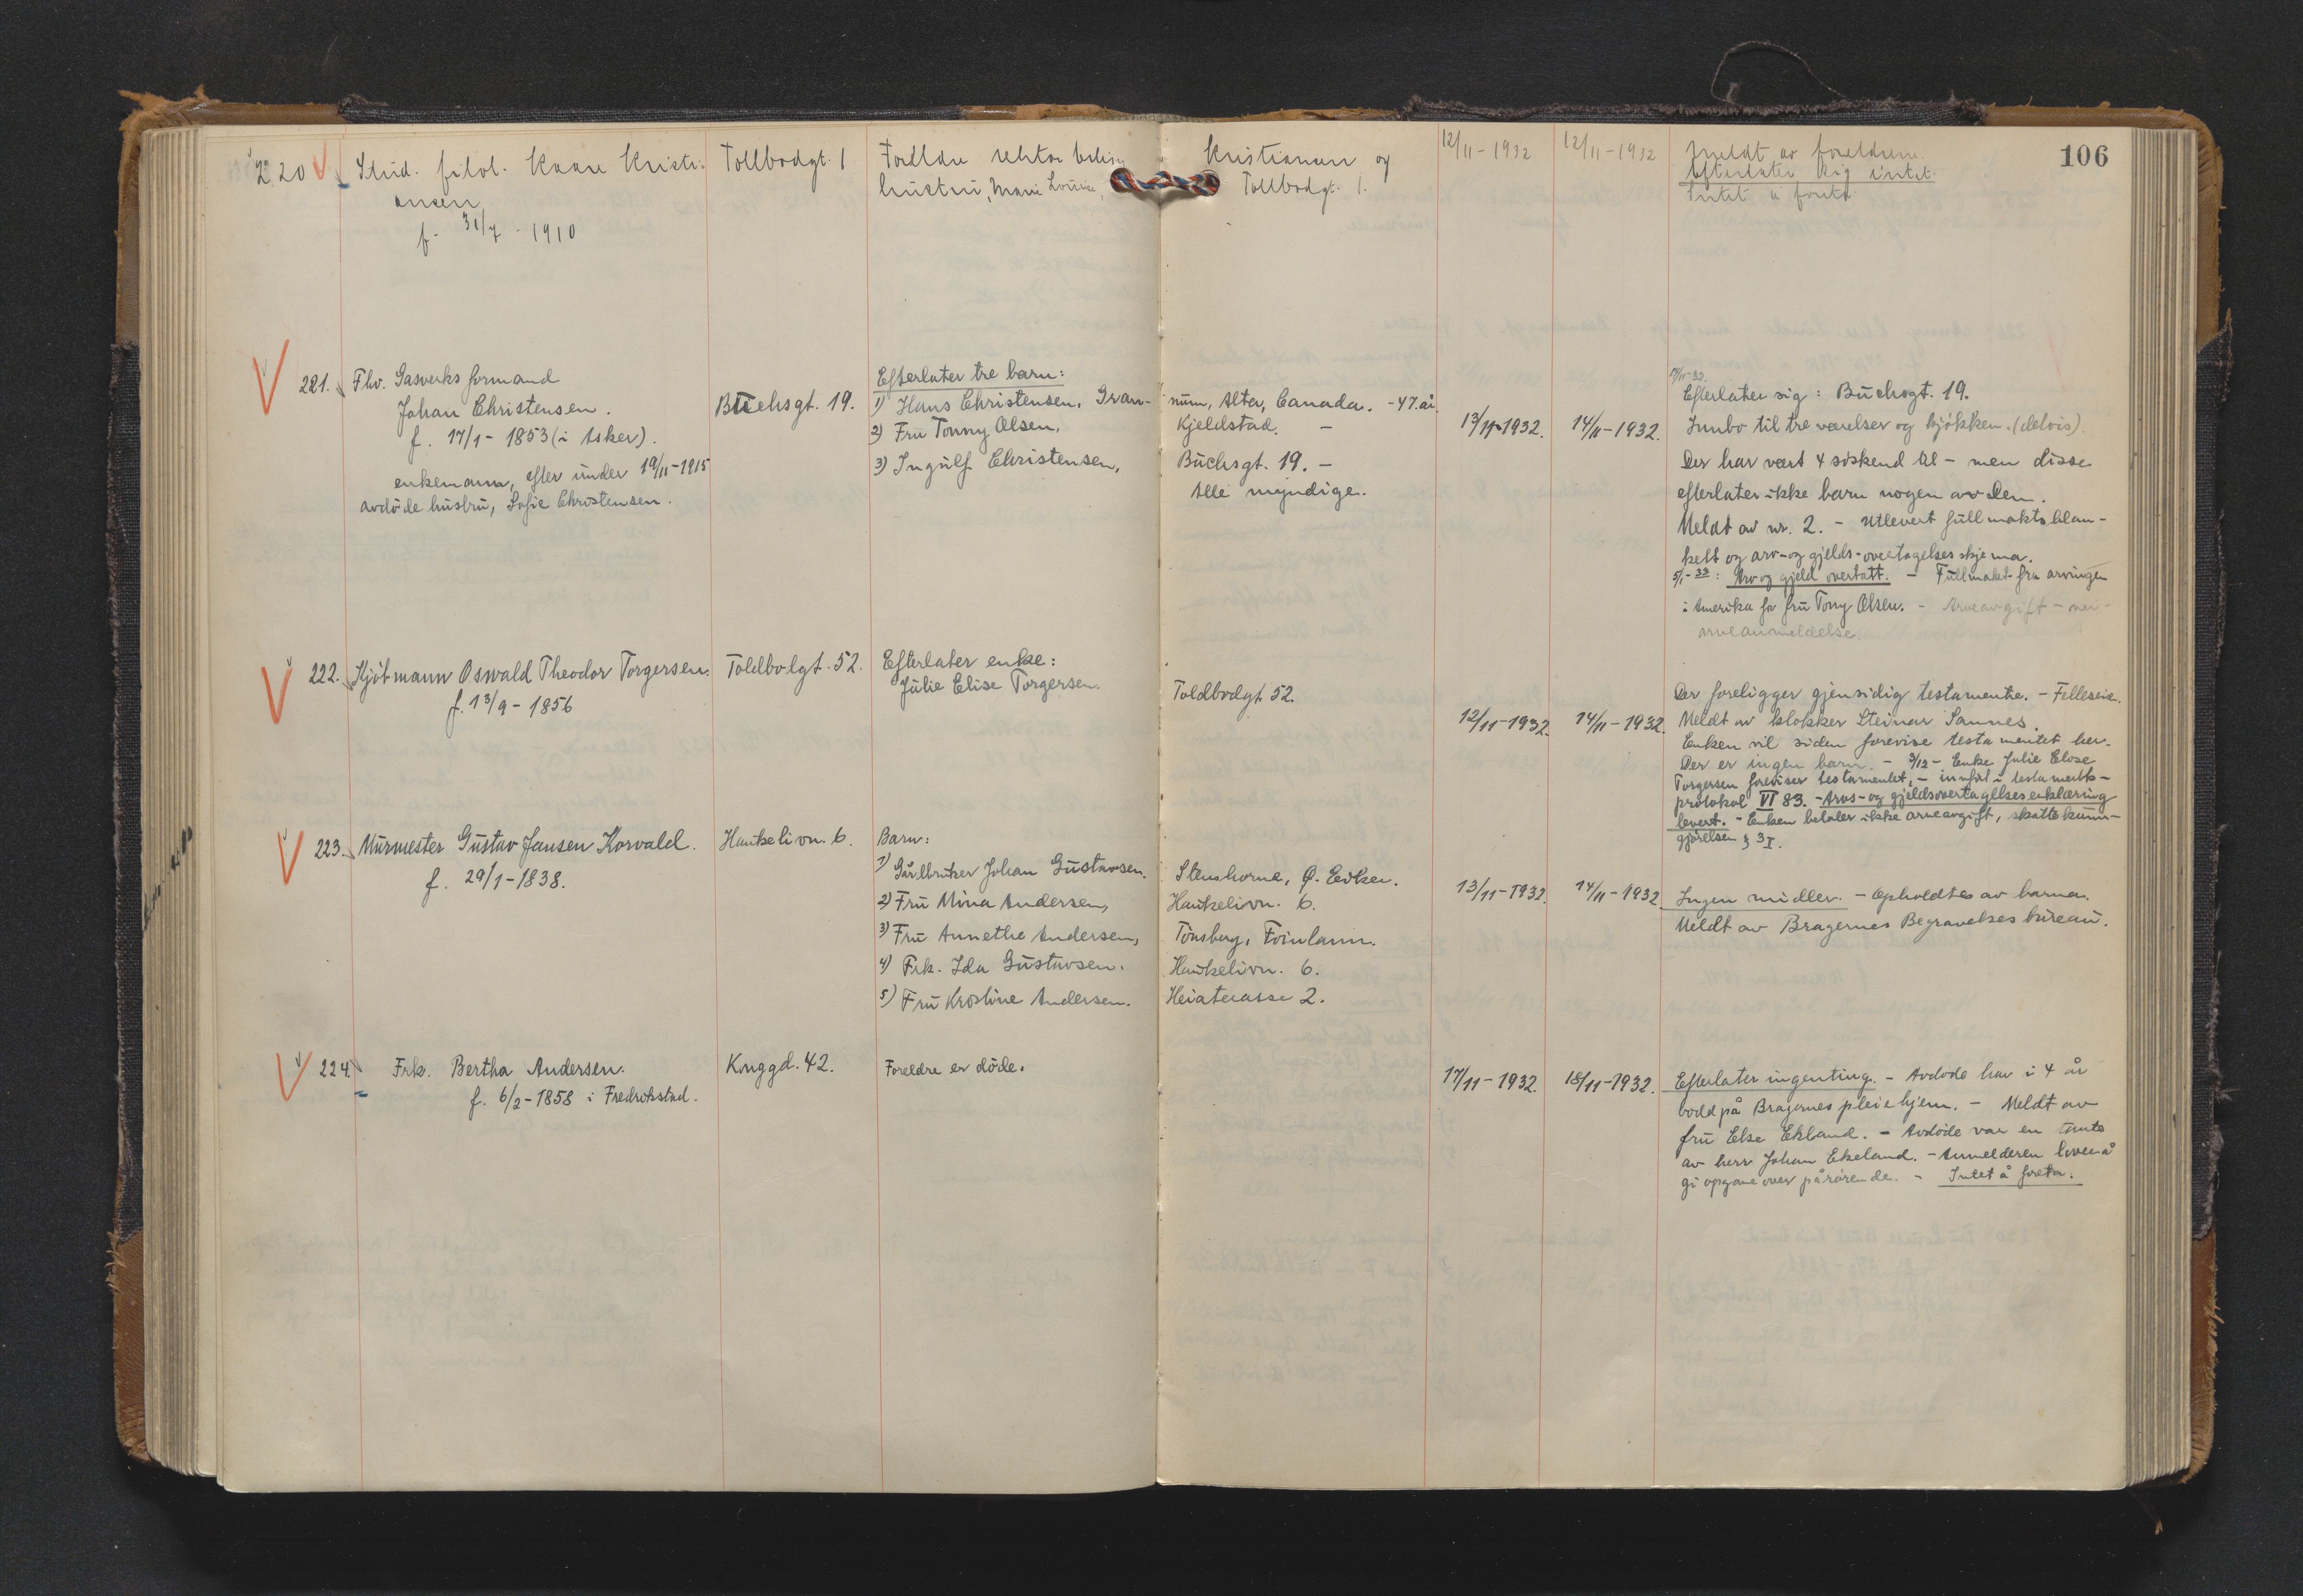 106
220 Stud. filol. Kaare Kristi-
ansen
f. 31/7 - 1910
Tollbodgt. 1
Forældre rektor
hustru, Marie Louise,
Kristiansen og
Tollbodgt. 1.
12/11-1932
12/11-1932
Meldt av foreldrene.
Efterlater sig intet.
Intet å foreta
221. Fhv. Gasverksformand
Johan Christensen.
f. 17/1-1853 (i Asker).
enkemann, efter under 19/11-1915
avdöde hustru, Sofie Christensen.
Buchsgt. 19.
Efterlater tre barn:
1) Hans Christensen, Gran-
2) Fru Tonny Olsen,
3) Ingulf Christensen,
num, Alta, Canada. - 47 år
Kjeldstad. -
Buchsgt. 19. -
Alle myndige.
13/11-1932.
14/11-1932.
Efterlater sig: Buchsgt. 19.
Innbo til tre værelser og kjökken. (delvis).
Der har vært 4 söskend til - men disse
efterlater ikke barn nogen av dem.
Meldt av nr. 2. - Utlevert fullmaktsblan-
kett og arv- og gjelds-overtagelsesskjema.
5/1-33: Arv og gjeld overtatt. - Fullmakt fra arvingen
i Amerika for fru Tony Olsen. - Arveavgift - nei -
arveanmeldelse.
222. Kjötmann Oswald Theodor Torgersen.
f. 13/9-1856
Toldbodgt. 52.
Efterlater enke:
Julie Elise Torgersen.
Toldbodgt. 52.
12/11-1932.
14/11-1932.
Der foreligger gjensidig testamente. - Felleseie.
Meldt av klokker Steinar Sannes.
Enken vil siden forevise testamentet her.
Der er ingen barn. - 3/12 - Enke Julie Elise
Torgersen foreviser testamentet, - innfört i testaments-
protokol VI 83. - Arvs- og gjeldsovertagelseserklæring
levert. - Enken betaler ikke arveavgift, skattekunn-
gjörelsen § 3 I.
223. Murmester Gustav Jansen Korvald.
f. 29/1-1838.
Haukelivn. 6.
Barn:
1) Gårdbruker Johan Gustavsen.
2) Fru Mina Andersen,
3) Fru Annethe Andersen,
4) Frk. Ida Gustavsen.
5) Fru Kristine Andersen.
Stenshorne, Ö. Eiker.
Haukelivn. 6.
Tönsberg, Foinlann.
Haukelivn. 6.
Heiaterasse 2.
13/11-1932.
14/11-1932.
Ingen midler. - Opholdtes av barna.
Meldt av Bragernes Begravelsesbureau.
224. Frk. Bertha Andersen.
f. 6/2-1858 i Fredrikstad.
Konggd. 42.
Foreldre er döde.
17/11-1932.
18/11-1932.
Efterlater ingenting. - Avdöde har i 4 år
bodd på Bragernes pleiehjem. - Meldt av
fru Else Ekland. - Avdöde var en tante
av herr Johan Ekeland. - Anmelderen lover å
gi opgave over pårörende. - Intet å foreta.